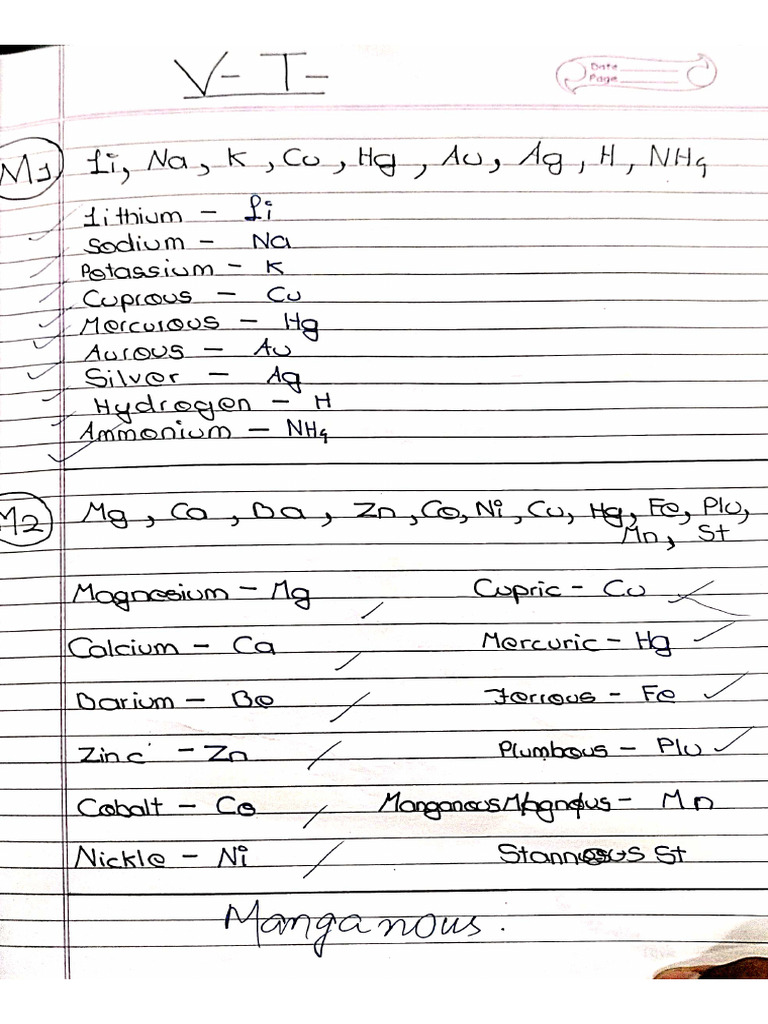 V- T-
Date
Page
M1 Li, Na, K, Cu, Hg, Au, Ag, H, NH4
Lithium - Li
Sodium - Na
Potassium - K
Cuprous - Cu
Mercurous - Hg
Aurous - Au
Silver - Ag
Hydrogen - H
Ammonium - NH4
M2 Mg, Ca, Ba, Zn, Co, Ni, Cu, Hg, Fe, Plu,
Mn, St
Magnesium - Mg
Calcium - Ca
Barium - Be
Zinc - Zn
Cobalt - Co
Nickle - Ni
Cupric - Cu
Mercuric - Hg
Ferrous - Fe
Plumbous - Plu
Manganous - Mn
Stannous St
Manganous.